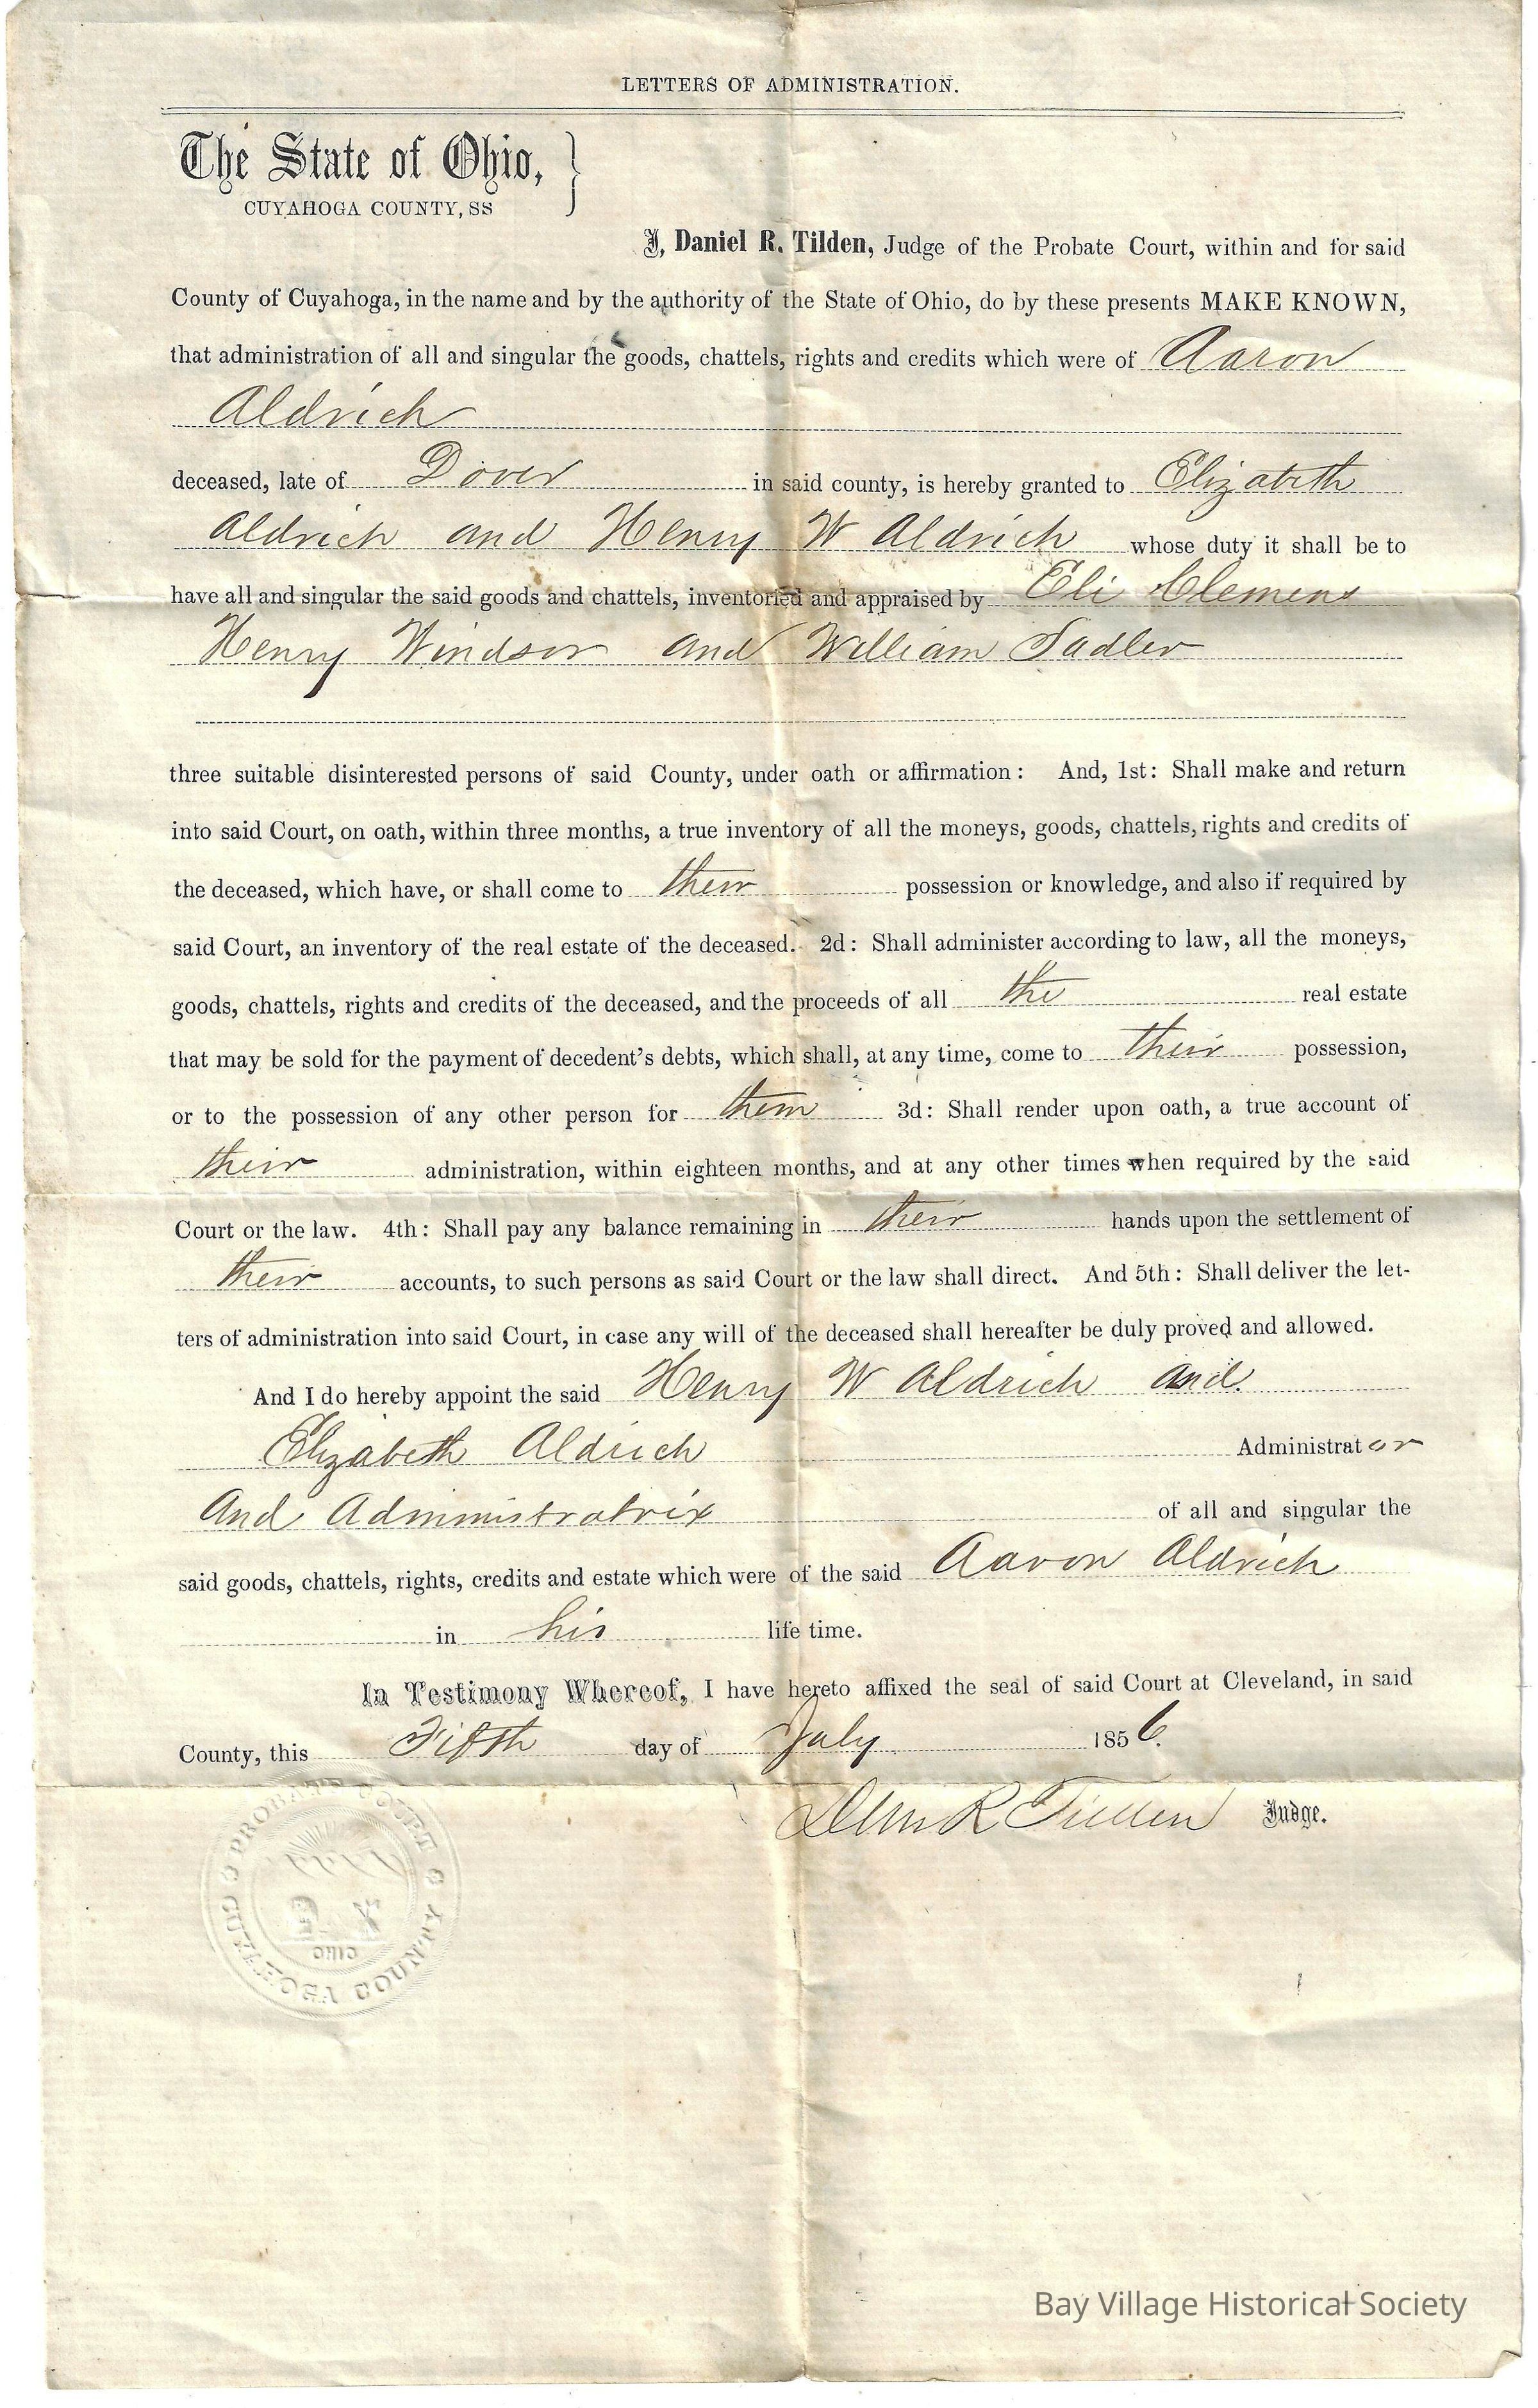 LETTERS OF ADMINISTRATION.
The State of Ohio, }
CUYAHOGA COUNTY, SS
I, Daniel R. Tilden, Judge of the Probate Court, within and for said
County of Cuyahoga, in the name and by the authority of the State of Ohio, do by these presents MAKE KNOWN,
that administration of all and singular the goods, chattels, rights and credits which were of Aaron
Aldrich
deceased, late of Dover in said county, is hereby granted to Elizabeth
Aldrich and Henry W Aldrich whose duty it shall be to
have all and singular the said goods and chattels, inventoried and appraised by Eli Clemens
Henry Windsor and William Sadler
three suitable disinterested persons of said County, under oath or affirmation: And, 1st: Shall make and return
into said Court, on oath, within three months, a true inventory of all the moneys, goods, chattels, rights and credits of
the deceased, which have, or shall come to their possession or knowledge, and also if required by
said Court, an inventory of the real estate of the deceased. 2d: Shall administer according to law, all the moneys,
goods, chattels, rights and credits of the deceased, and the proceeds of all the real estate
that may be sold for the payment of decedent's debts, which shall, at any time, come to their possession,
or to the possession of any other person for them 3d: Shall render upon oath, a true account of
their administration, within eighteen months, and at any other times when required by the said
Court or the law. 4th: Shall pay any balance remaining in their hands upon the settlement of
their accounts, to such persons as said Court or the law shall direct. And 5th: Shall deliver the let-
ters of administration into said Court, in case any will of the deceased shall hereafter be duly proved and allowed.
And I do hereby appoint the said Henry W Aldrich and
Elizabeth Aldrich Administrator
And Administratrix of all and singular the
said goods, chattels, rights, credits and estate which were of the said Aaron Aldrich
in his life time.
In Testimony Whereof, I have hereto affixed the seal of said Court at Cleveland, in said
County, this Fifth day of July 1856.
Danl R Tilden Judge.
PROBATE COURT
CUYAHOGA COUNTY
OHIO
Bay Village Historical Society